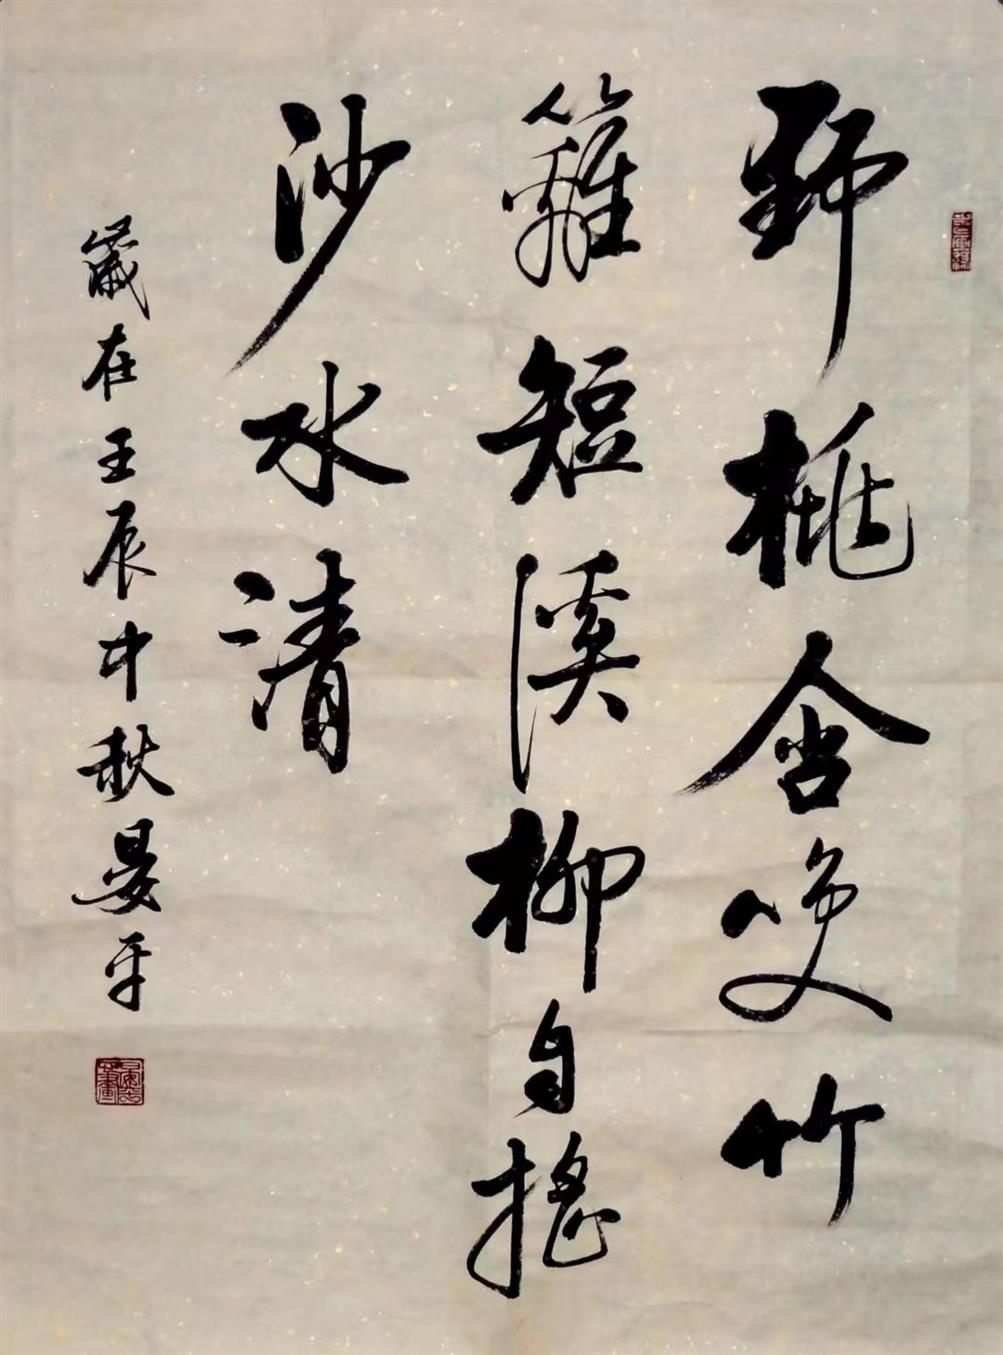 野桃含笑竹
籬短溪柳自搖
沙水清
歲在壬辰中秋晏平